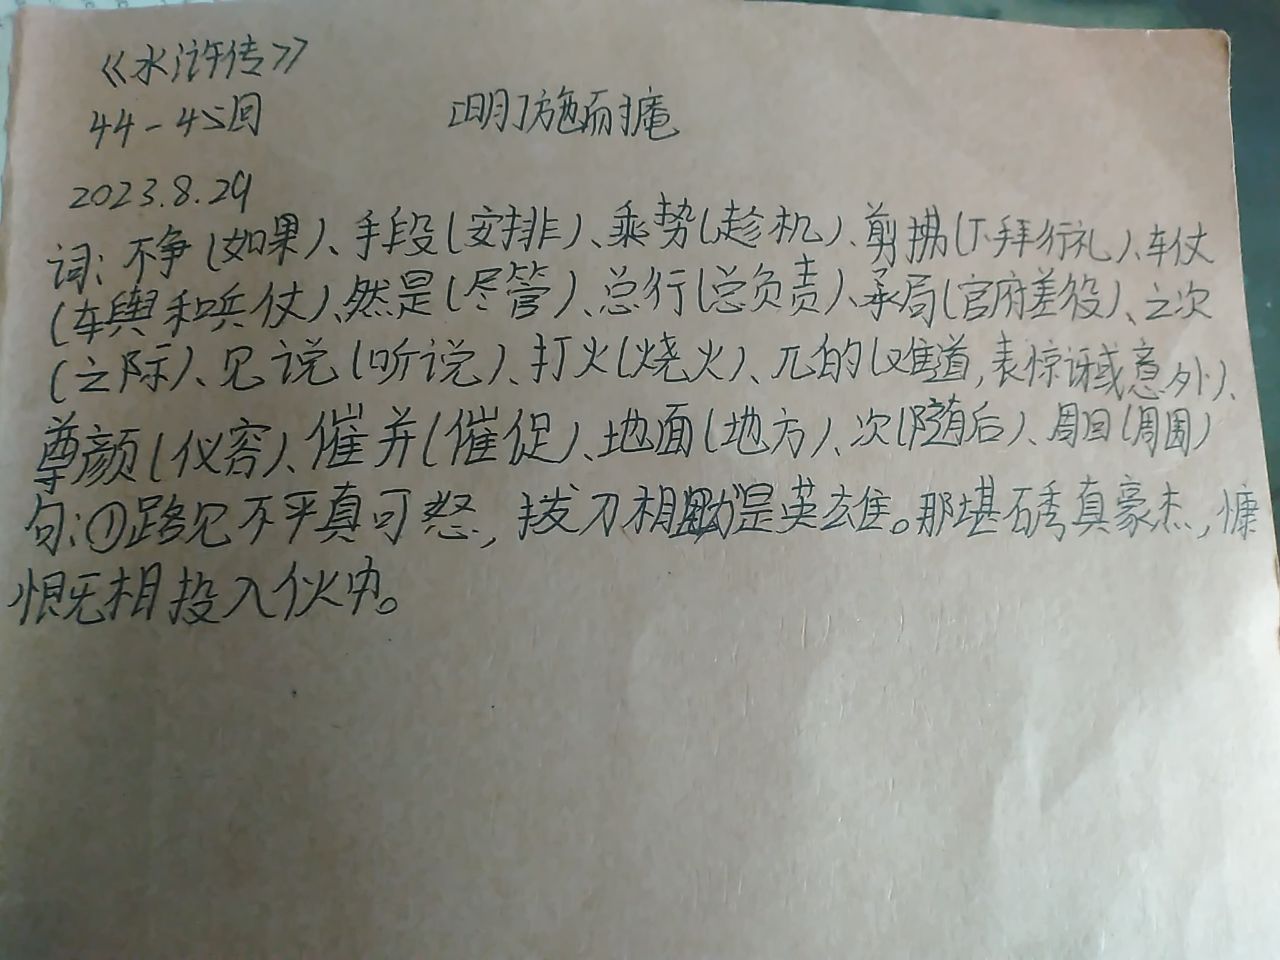 《水浒传》
44-45回 [明]施耐庵
2023.8.29
词:不争(如果)、手段(安排)、乘势(趁机)、剪拂(下拜行礼)、车仗
(车舆和兵仗)、然是(尽管)、总行(总负责)、承局(官府差役)、之次
(之际)、见说(听说)、打火(烧火)、兀的(难道,表惊讶或意外)、
尊颜(仪容)、催并(催促)、地面(地方)、次(随后)、周回(周围)
句:①路见不平真可怒,拔刀相助是英雄。那堪石秀真豪杰,慷
慨相投入伙中。